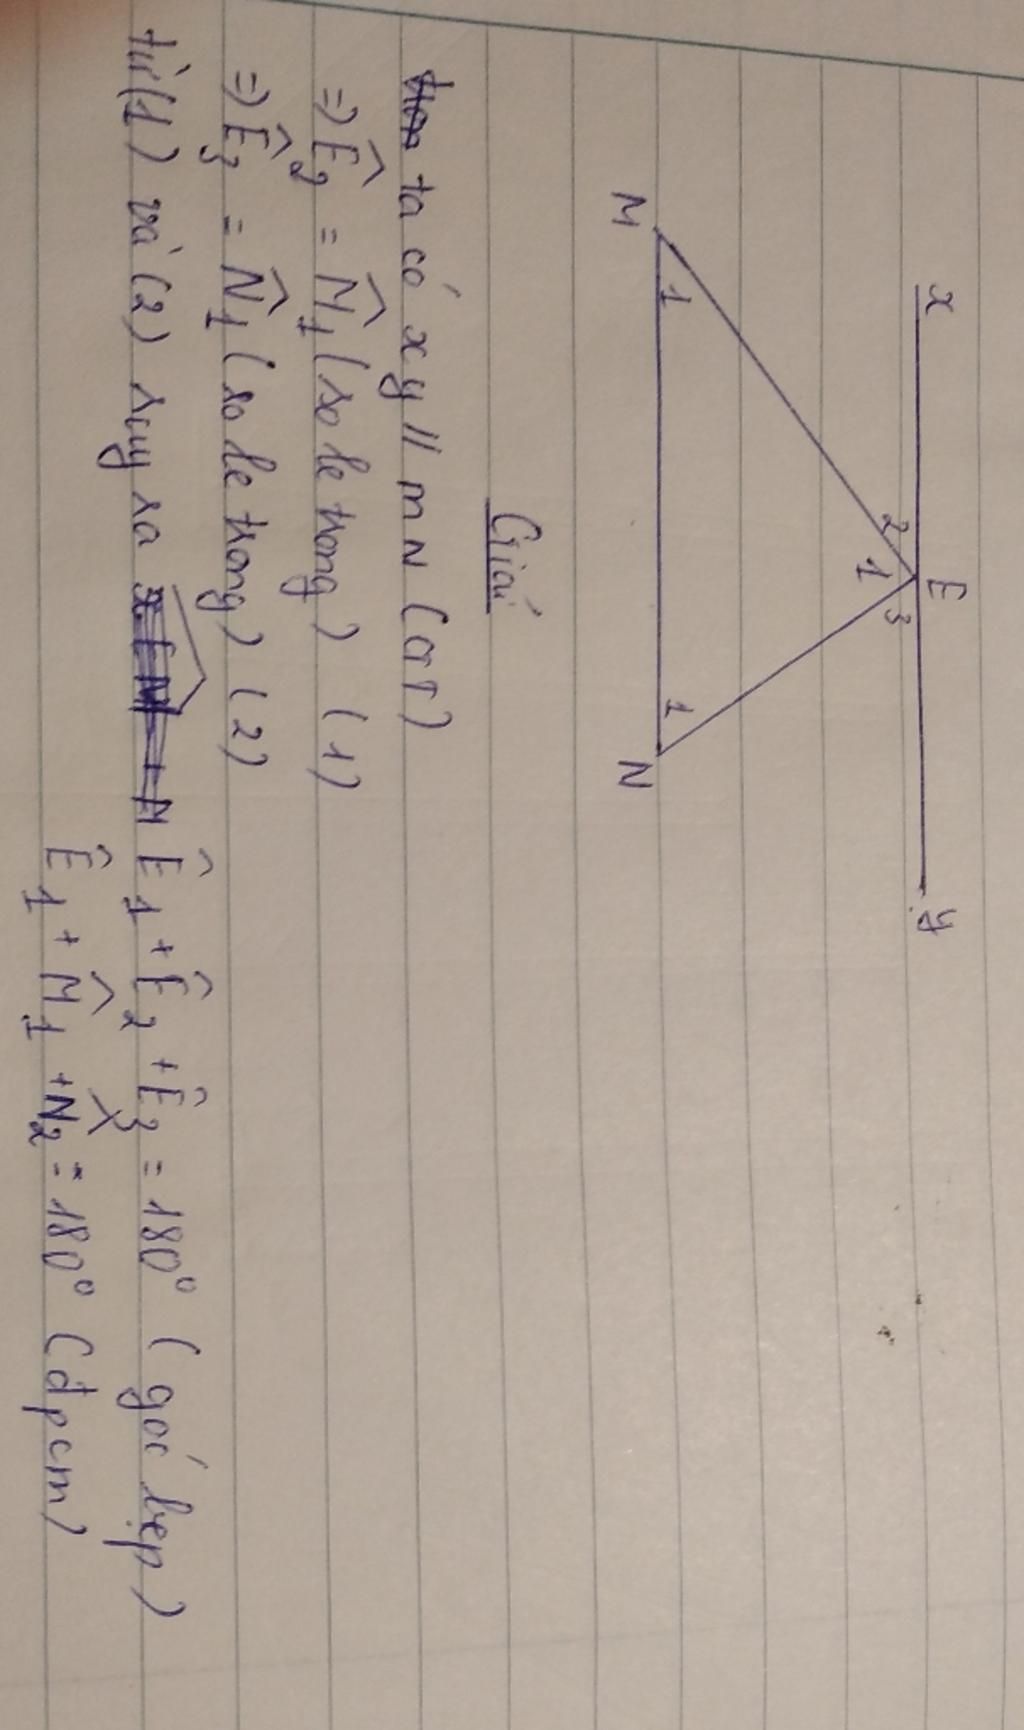 x E y
2 1 3
M 1 1 N
Giải
ta có xy // mN (GT)
=> Ê2 = M̂1 (so le trong) (1)
=> Ê3 = N̂1 (so le trong) (2)
từ (1) và (2) suy ra Ê1 + Ê2 + Ê3 = 180° (góc bẹp)
Ê1 + M̂1 + N̂2 = 180° (đpcm)